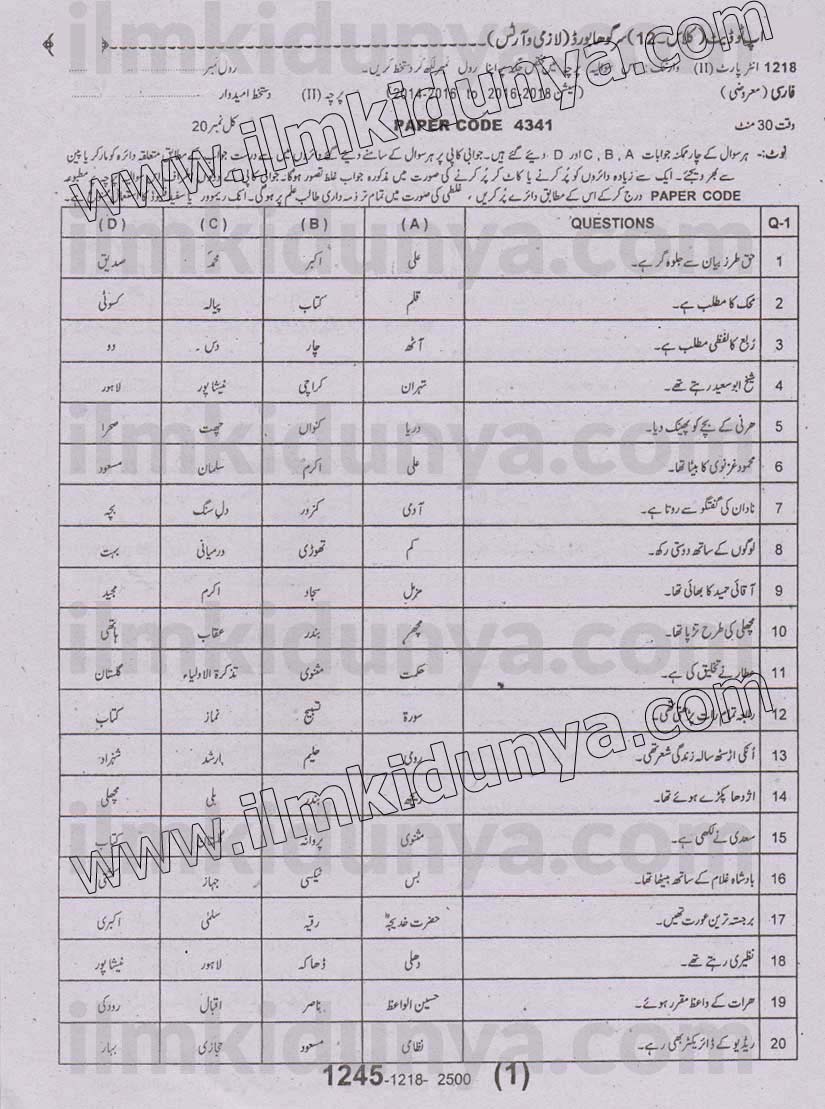 اپ ٹو ڈیٹ (کلاس - 12) سرگودھا بورڈ (لازمی و آرٹس)
1218 انٹر پارٹ (II) رول نمبر
فارسی (معروضی) (سیشن 2016-2018 to 2014-2016) پرچہ (II) دستخط امیدوار
وقت 30 منٹ PAPER CODE 4341 کل نمبر 20
نوٹ:- ہر سوال کے چار ممکنہ جوابات A , B , C اور D دیئے گئے ہیں۔ جوابی کاپی پر ہر سوال کے سامنے دیئے گئے دائروں میں سے درست جواب کے مطابق متعلقہ دائرہ کو مارکر یا پین
سے بھر دیجئے۔ ایک سے زیادہ دائروں کو پُر کرنے یا کاٹ کر پُر کرنے کی صورت میں مذکورہ جواب غلط تصور ہوگا۔ جوابی کاپی کے
PAPER CODE درج کر کے اس کے مطابق دائرے پُر کریں، غلطی کی صورت میں تمام تر ذمہ داری طالب علم پر ہوگی۔ انک ریموور
Q-1 QUESTIONS (A) (B) (C) (D)
1 حق طرز بیان سے جلوہ گر ہے۔ علی اکبر محمدؐ صدیق
2 محک کا مطلب ہے۔ قلم کتاب پیالہ کسوٹی
3 ربع کا لفظی مطلب ہے۔ آٹھ چار دس دو
4 شیخ ابو سعید رہتے تھے۔ تہران کراچی نیشاپور لاہور
5 ہرنی کے بچے کو پھینک دیا۔ دریا کنواں چھت صحرا
6 محمود غزنوی کا بیٹا تھا۔ علی اکرم سلمان مسعود
7 نادان کی گفتگو سے روتا ہے۔ آدمی کمزور دل سنگ بچہ
8 لوگوں کے ساتھ دوستی رکھ۔ کم تھوڑی درمیانی بہت
9 آقائی حمید کا بھائی تھا۔ مزمل سجاد اکرم مجید
10 مچھلی کی طرح تڑپا تھا۔ مچھر بندر عقاب ہاتھی
11 عطار نے تخلیق کی ہے۔ حکمت مثنوی تذکرۃ الاولیاء گلستان
12 رابعہ تمام رات پڑھتی تھی۔ سورۃ تسبیح نماز کتاب
13 انکی اڑسٹھ سالہ زندگی شعر تھی۔ رومی حلیم ارشد شہزاد
14 اژدھا پکڑے ہوئے تھا۔ بندر بلی مچھلی
15 سعدی نے لکھی ہے۔ مثنوی پروانہ کتاب
16 بادشاہ غلام کے ساتھ بیٹھا تھا۔ بس ٹیکسی جہاز
17 برجستہ ترین عورت تھیں۔ حضرت خدیجہؓ رقیہ سلمٰی اکبری
18 نظیری رہتے تھے۔ دھلی ڈھاکہ لاہور نیشاپور
19 ھرات کے واعظ مقرر ہوئے۔ حسین الواعظ ناصر اقبال رودکی
20 ریڈیو کے ڈائریکٹر بھی رہے۔ نظامی مسعود حجازی بہار
1245-1218- 2500 (1)
www.ilmkidunya.com
www.ilmkidunya.com
ilmkidunya.com
ilmkidunya.com
ilmkidunya.com
ilmkidunya.com
ilmkidunya.com